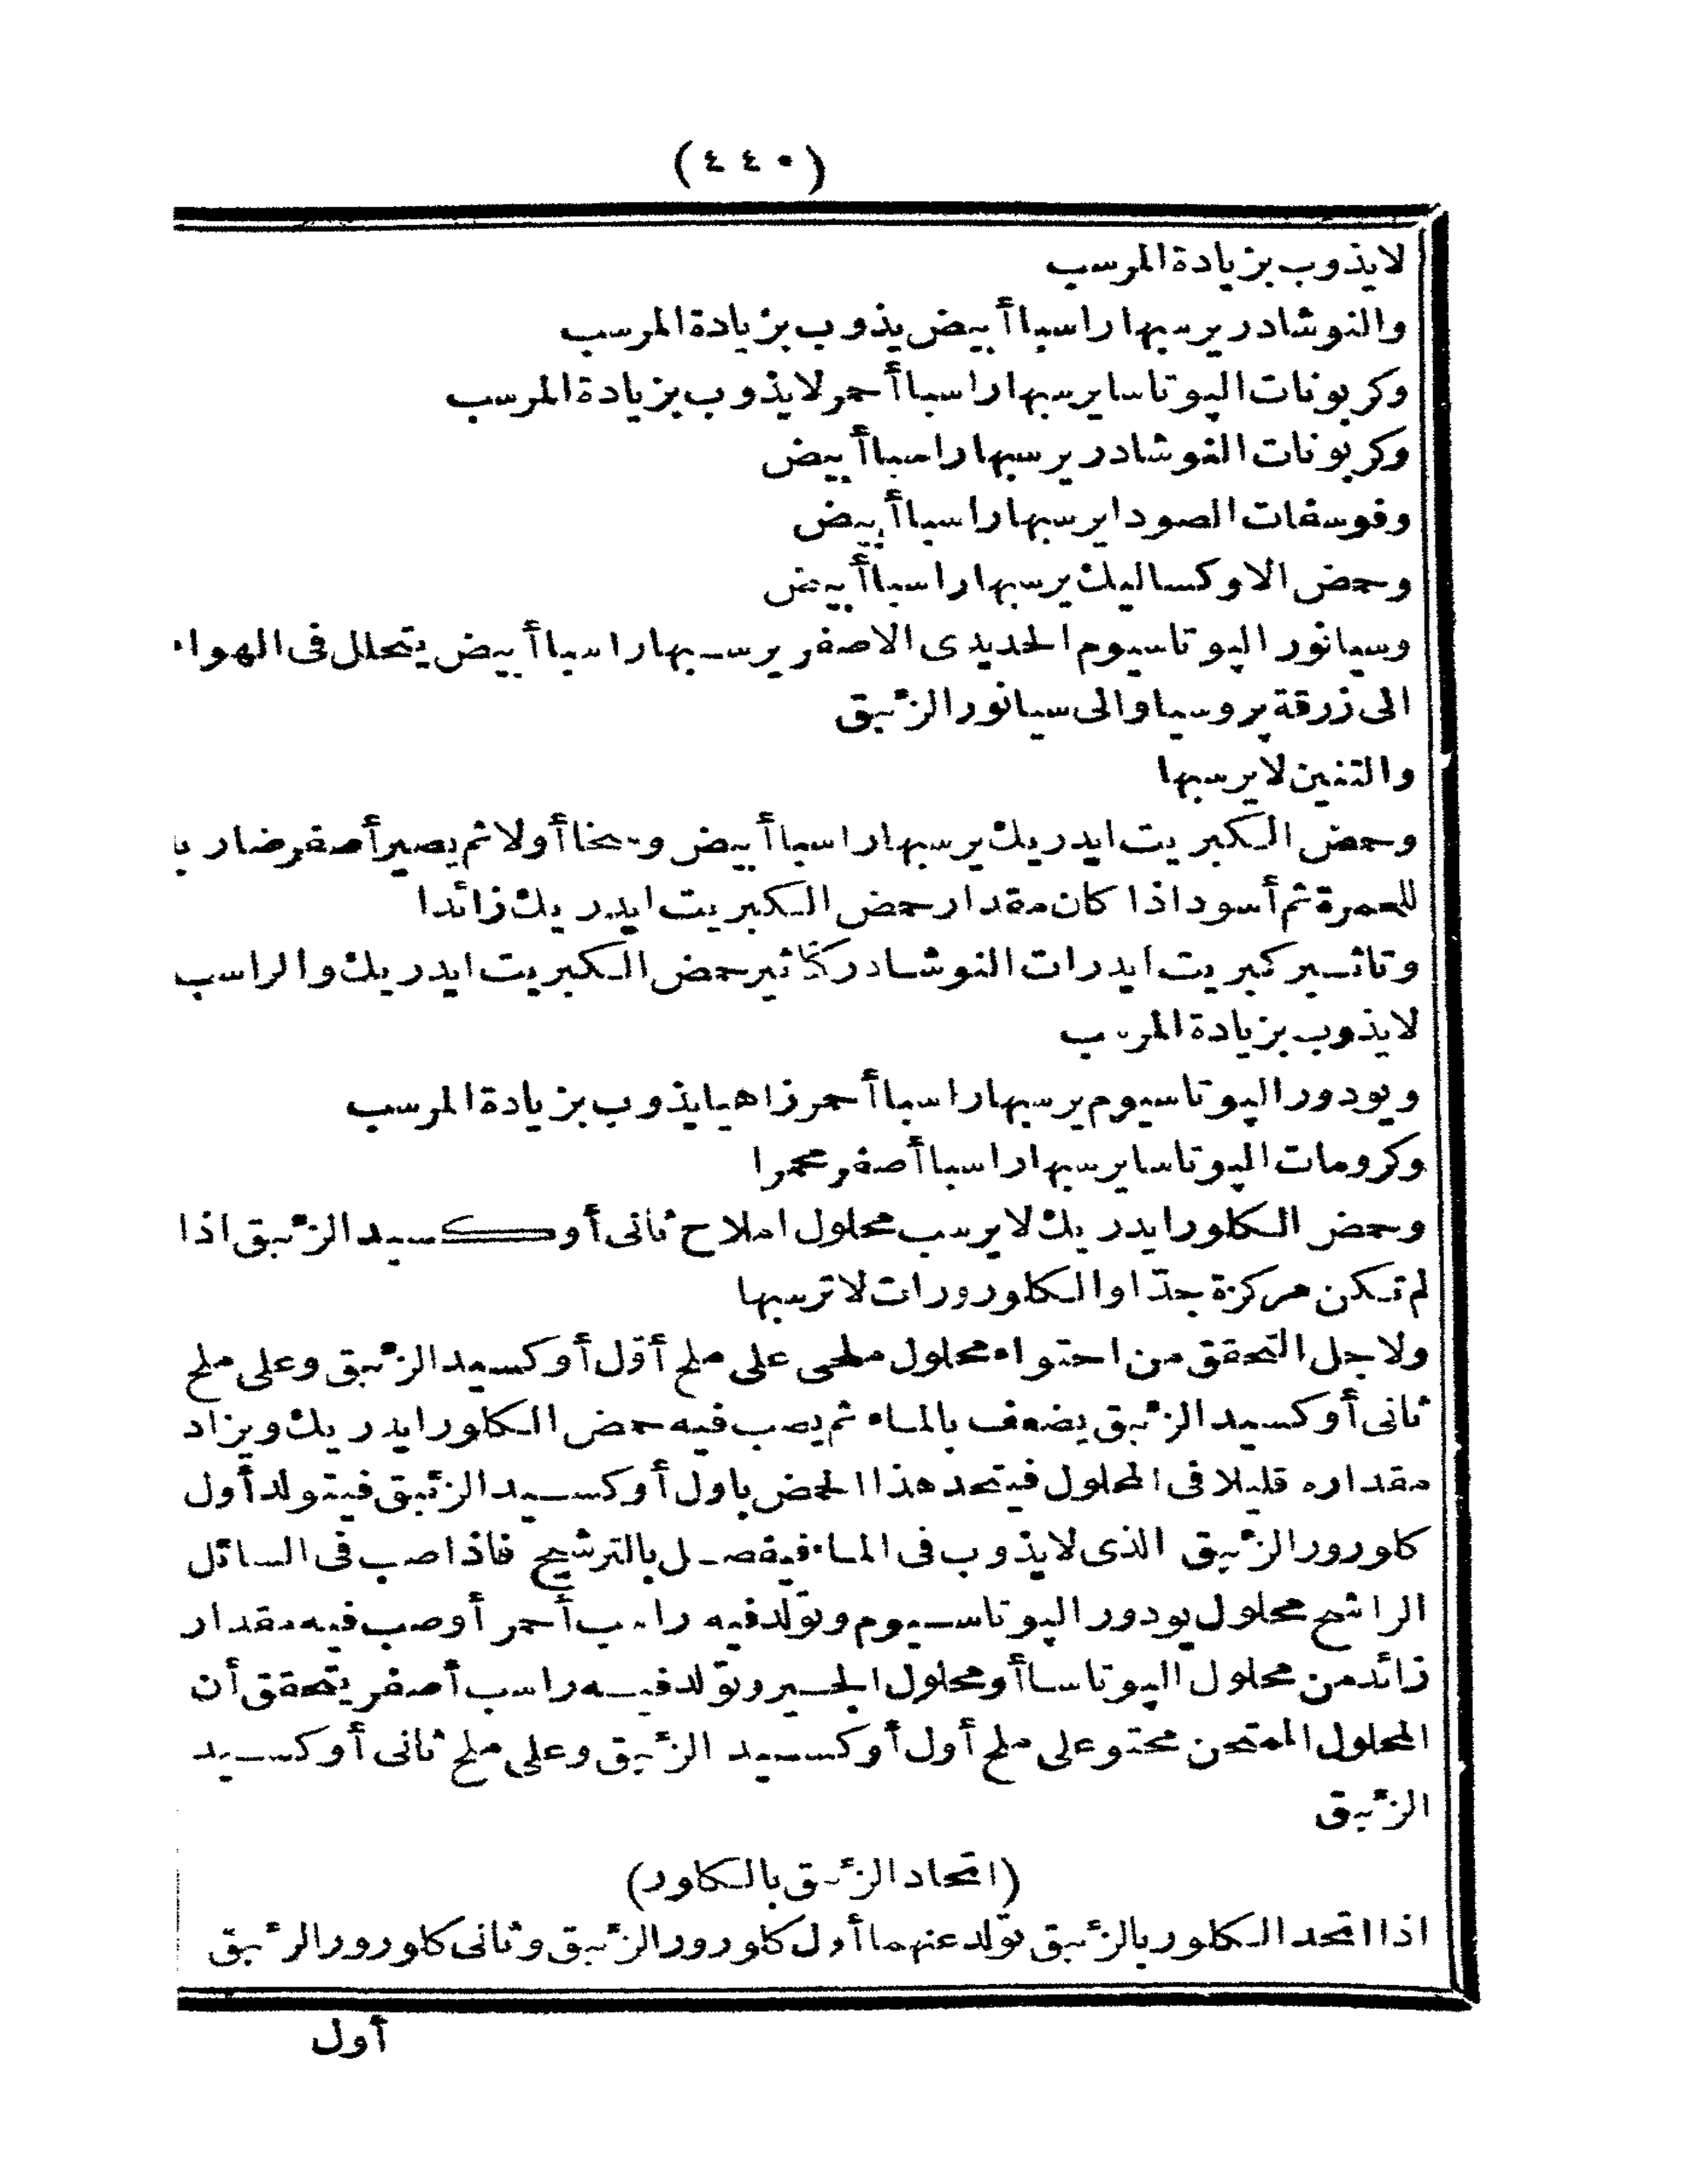 (٤٤٠)
لا يذوب بزيادة المرسب
والنوشادر يرسبها راسبا أبيض يذوب بزيادة المرسب
وكربونات الپوتاسا يرسبها راسبا أحمر لا يذوب بزيادة المرسب
وكربونات النوشادر يرسبها راسبا أبيض
وفوسفات الصودا يرسبها راسبا أبيض
وحمض الاوكساليك يرسبها راسبا أبيض
وسيانور الپوتاسيوم الحديدى الاصفر يرسبها راسبا أبيض يتحلل فى الهواء
الى زرقة پروسيا والى سيانور الزئبق
والتنين لا يرسبها
وحمض الكبريت ايدريك يرسبها راسبا أبيض وسخا أولا ثم يصير أصفر ضاربا
للحمرة ثم أسود اذا كان مقدار حمض الكبريت ايدريك زائدا
وتاثير كبريت ايدرات النوشادر كتاثير حمض الكبريت ايدريك والراسب
لا يذوب بزيادة المرسب
ويودور الپوتاسيوم يرسبها راسبا أحمر زاهيا يذوب بزيادة المرسب
وكرومات الپوتاسا يرسبها راسبا أصفر محمرا
وحمض الكلور ايدريك لا يرسب محلول املاح ثانى أوكسيد الزئبق اذا
لم تكن مركزة جدّا والكلورورات لا ترسبها
ولاجل التحقق من احتواء محلول ملحى على ملح أوّل أوكسيد الزئبق وعلى ملح
ثانى أوكسيد الزئبق يضعف بالماء ثم يصب فيه حمض الكلور ايدريك ويزاد
مقداره قليلا فى المحلول فيتحد هذا الحمض باول أوكسيد الزئبق فيتولد أول
كلورور الزئبق الذى لا يذوب فى الماء فيفصل بالترشيح فاذا صب فى السائل
الراشح محلول يودور الپوتاسيوم وتولد فيه راسب أحمر أوصب فيه مقدار
زائد من محلول الپوتاسا أو محلول الجير وتولد فيه راسب أصفر يتحقق أن
المحلول الممتحن محتو على ملح أول أوكسيد الزئبق وعلى ملح ثانى أوكسيد
الزئبق
(اتحاد الزئبق بالكلور)
اذا اتحد الكلور بالزئبق تولد عنهما أول كلورور الزئبق وثانى كلورور الزئبق
أول